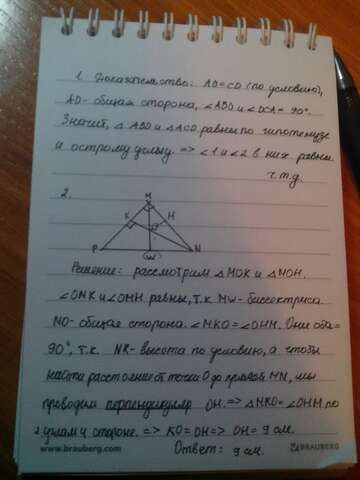 1. Доказательство: AD=CD (по условию),
AD- общая сторона, ∠ABD и ∠DCA = 90°.
Значит, △ ABD и △ACD равны по гипотенузе
и острому углу. => ∠1 и ∠2 в них равны.
ч.т.д.
2.
M
K
H
P
(W)
N
Решение: рассмотрим △MOK и △MOH.
∠OMK и ∠OMH равны, т.к. MW- биссектриса.
MO- общая сторона. ∠MKO = ∠OHM. Они оба =
90°, т.к. NK- высота по условию, а чтобы
найти расстояние от точки O до прямой MN, мы
проводим перпендикуляр OH. => △MKO = ∠OHM по
2 углам и стороне. => KO = OH => OH = 9 см.
Ответ: 9 см.
www.brauberg.com
BRAUBERG